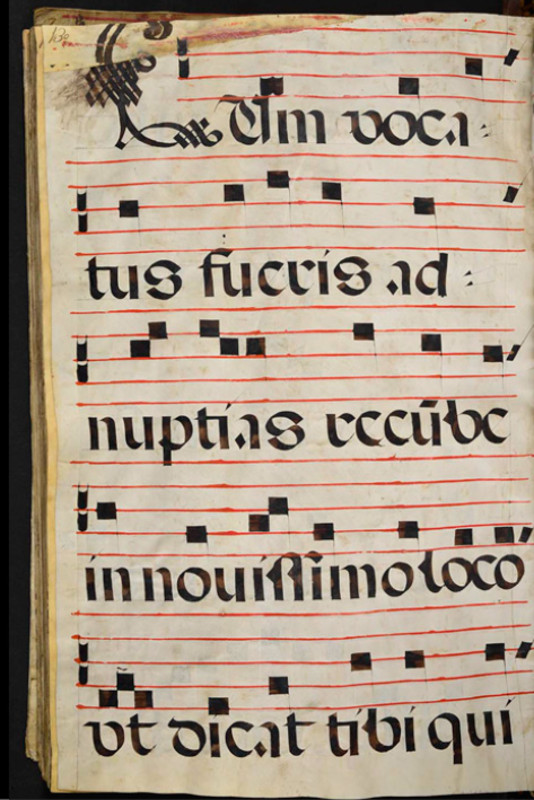 CUm voca:
tus fueris ad:
nuptias recūbe
in nouissimo loco
vt dicat tibi qui